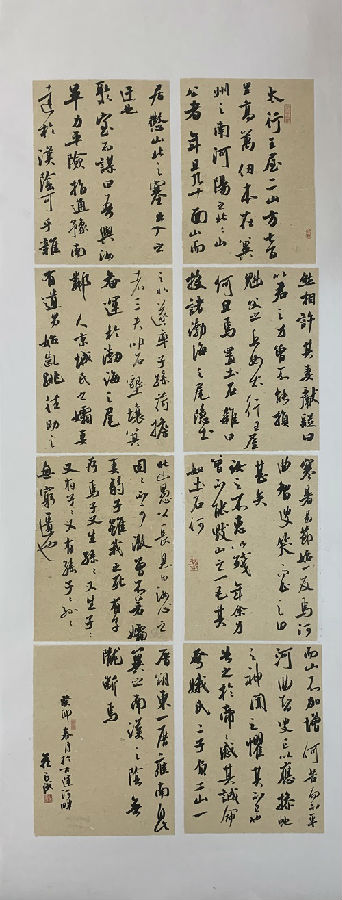 太行王屋二山方七百
里高萬仞本在冀
州之南河陽之北北山
公者年且九十面山而
居懲山北之塞出入之
迂也
聚室而謀曰吾與汝
畢力平險指通豫南
達於漢陰可乎雜
然相許其妻獻疑曰
以君之力曾不能損
魁父之丘如太行王屋
何且焉置土石雜曰
投諸渤海之尾隱土
之北遂率子孫荷擔
者三夫叩石墾壤箕
畚運於渤海之尾
鄰人京城氏之孀妻
有遺男始齔跳往助之
寒暑易節始一反焉河
曲智叟笑而止之曰
甚矣
汝之不惠以殘年余力
曾不能毀山之一毛其
如土石何
北山愚公長息曰汝心之
固固不可徹曾不若孀
妻弱子雖我之死有子
存焉子又生孫孫又生子子
又有子子又有孫子子孫孫
無窮匱也
而山不加增何苦而不平
河曲智叟亡以應操蛇
之神聞之懼其不已也
告之於帝帝感其誠命
夸娥氏二子負二山一
厝朔東一厝雍南自此
冀之南漢之陰無
隴斷焉
癸卯 月於古 河畔